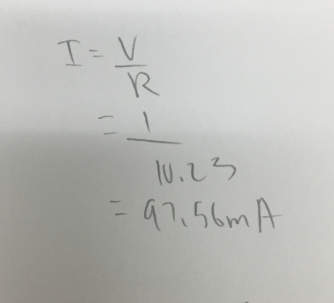 I = V
R
= 1
10.25
= 97.56mA